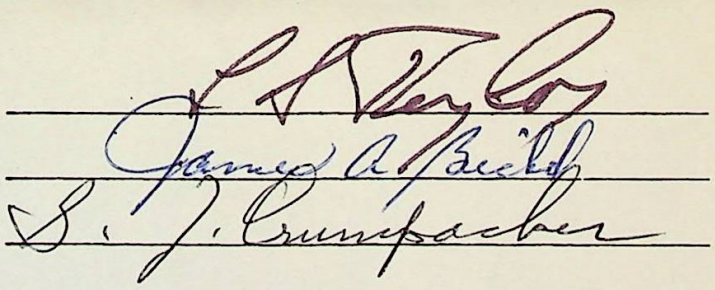 L S Taylor
James A
S. J. Crumpacker